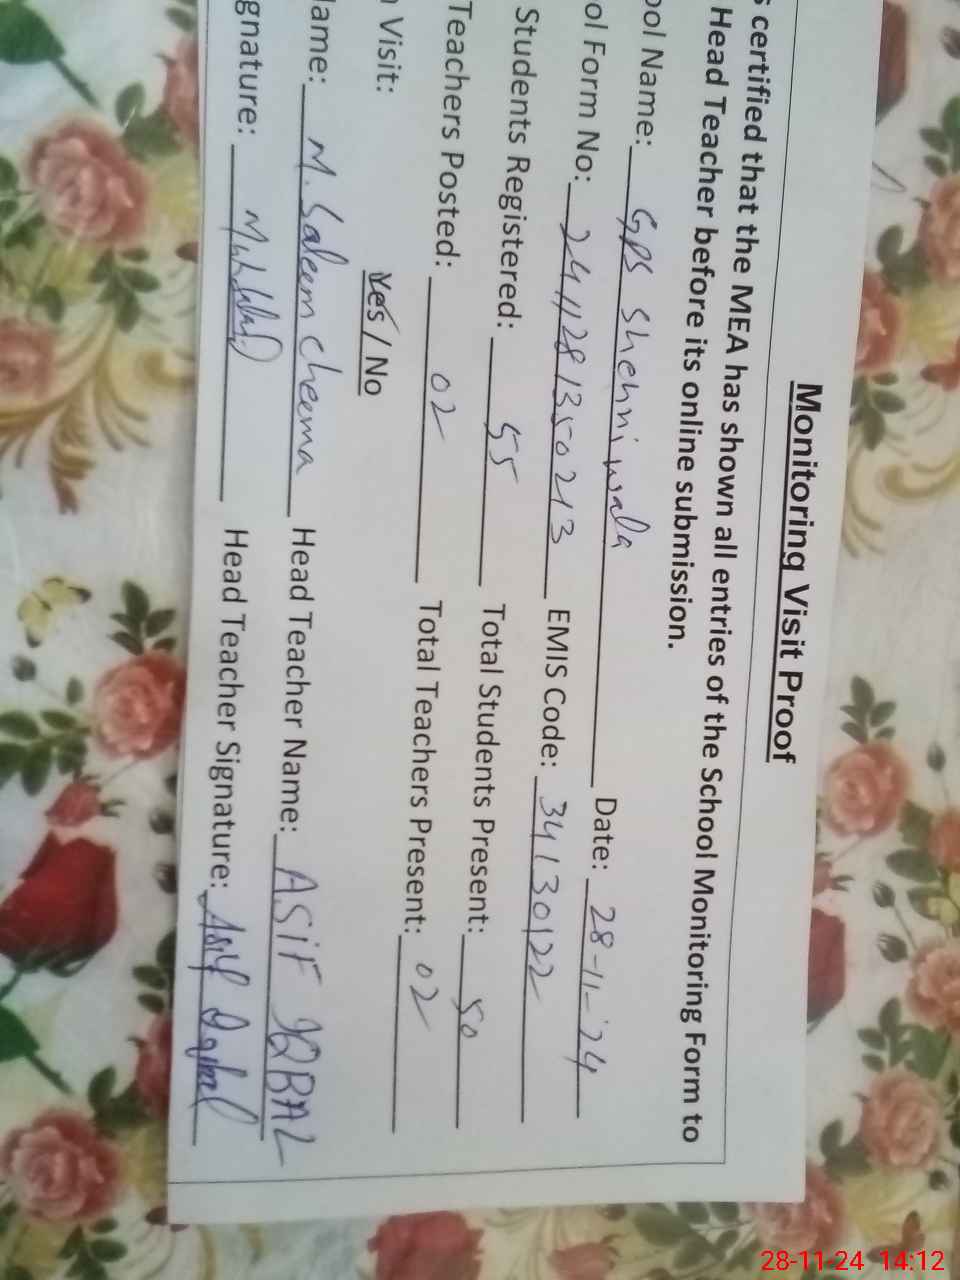 Monitoring Visit Proof
s certified that the MEA has shown all entries of the School Monitoring Form to
Head Teacher before its online submission.
ool Name: GPS Shehni wala Date: 28-11-24
ol Form No: 241128 1350213 EMIS Code: 34130122
Students Registered: 55 Total Students Present: 50
Teachers Posted: 02 Total Teachers Present: 02
Visit: Yes / No
Name: M. Saleem Cheema Head Teacher Name: ASIF IQBAL
gnature: Head Teacher Signature: Asif Iqbal
28-11-24 14:12